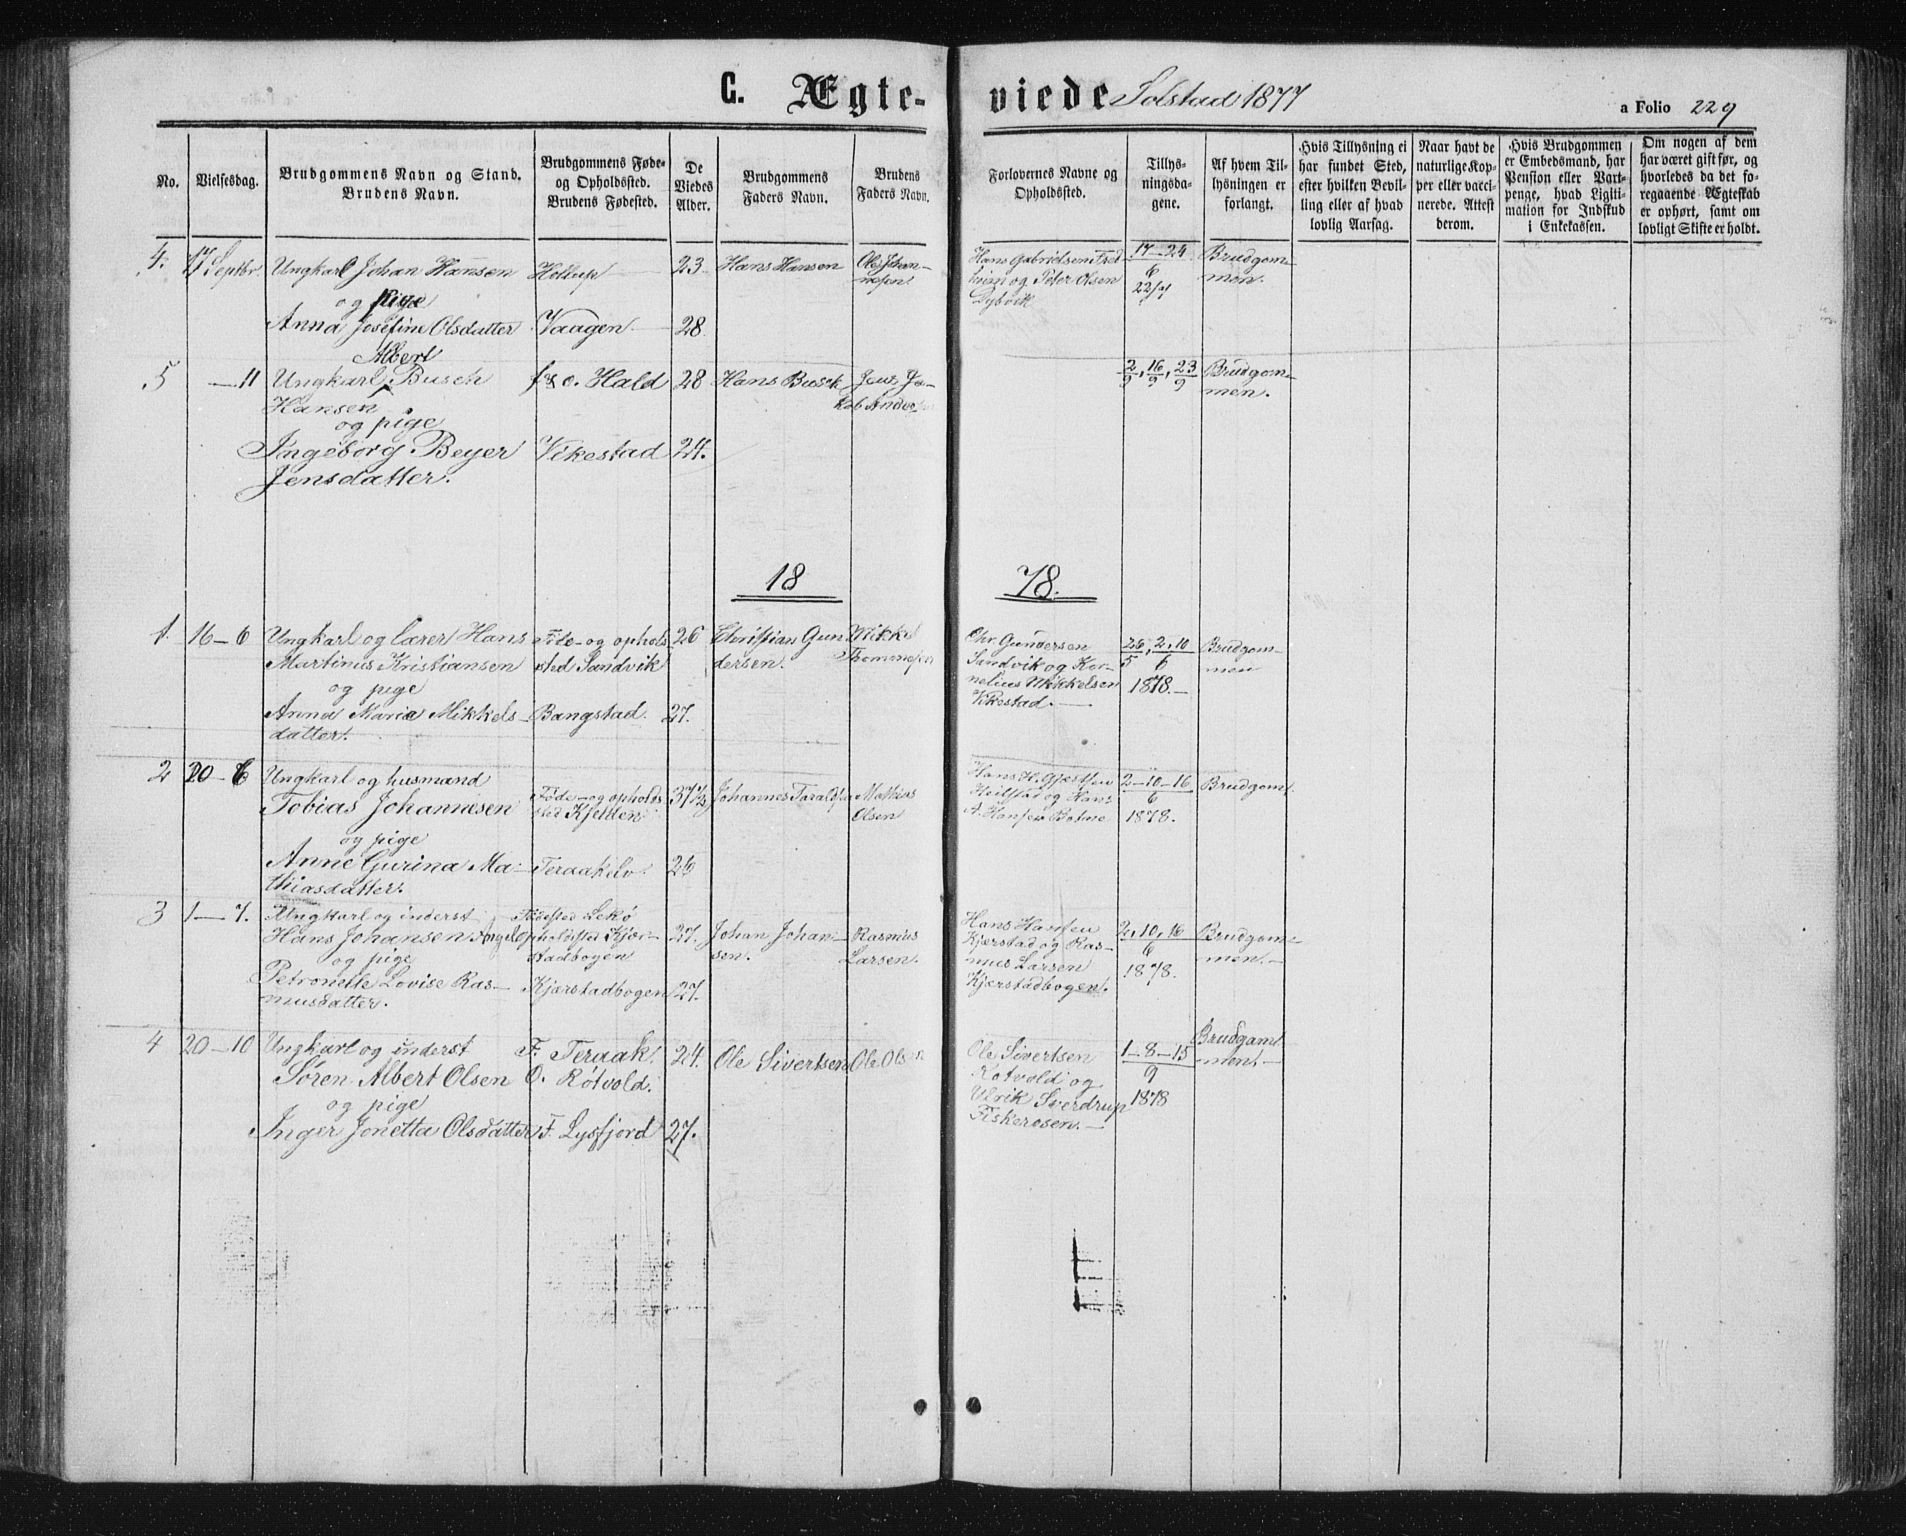 C. Ægte-
viede Solstad 1877
a Folio 229
No.
Vielsesdag.
Brudgommens Navn og Stand.
Brudens Navn.
Brudgommens Føde-
og Opholdssted.
Brudens Fødested.
De
Viedes
Alder.
Brudgommens
Faders Navn.
Brudens
Faders Navn.
Forlovernes Navne og
Opholdssted.
Tillys-
ningsda-
gene.
Af hvem Til-
lysningen er
forlangt.
Hvis Tillysning ei
har fundet Sted,
efter hvilken Bevil-
ling eller af hvad
lovlig Aarsag.
Naar havt de
naturlige Kop-
per eller vacci-
nerede. Attest
derom.
Hvis Brudgommen
er Embedsmand, har
Pension eller Vart-
penge, hvad Ligiti-
mation for Indskud
i Enkekassen.
Om nogen af dem
har været gift før, og
hvorledes da det fo-
regaaende Ægteskab
er ophørt, samt om
lovligt Skifte er holdt.
4. 17 Septbr.
Ungkarl Johan Hansen
og pige
Anna Josefine Olsdatter
Vaagen
23
28
Hans Hansen
Ole Johan-
nesen
Hans Gabrielsen
og Peter Olsen
Dybvik
17-24
6
22/7
Brudgom-
men.
5 -11
Albert
Ungkarl Busch
Hansen
og pige
Ingeborg Beyer
Jensdatter.
f & o. Hald
Vikestad
28
24.
Hans Busch
2/9, 16/9, 23/9
Brudgom-
men.
18
78.
1. 16-6
Ungkarl og lærer Hans
Martinus Kristiansen
og pige
Anna Marie Mikkels-
datter.
Føde- og ophols-
sted Sandvik
Bangstad.
26
27.
Christian Gun-
dersen.
Mikkel
Thommesen
Chr. Gundersen
Sandvik og Kor-
nelius Mikkelsen
Vikestad.
26, 2, 10
5 6
1878.
Brudgom-
men
2 20-6
Ungkarl og husmand
Tobias Johannesen
og pige
Anne Gurina Ma-
thiasdatter.
Føde- og opholds-
sted Kjelden
Teraakelv.
37½
26
Johannes Taraldsen
Mathias
Olsen
og Hans
A. Hansen Botne
2-10-16
6
1878.
Brudgom.
3 1-7.
Ungkarl og inderst
Hans Johansen Angel
og pige
Petronelle Lovise Ras-
musdatter.
Fødested Lekø
opholdssted Kjær-
stadbogen
Kjærstadbogen
27.
27.
Johan Johan-
sen.
Rasmus
Larsen.
Hans Hansen
Kjærstad og Ras-
mus Larsen
Kjærstadbogen.
2, 10, 16
6
1878.
Brudgom-
men.
4 20-10
Ungkarl og inderst
Søren Albert Olsen
og pige
Inger Jonetta Olsdatter
F. Teraak.
O. Røtvold.
F. Lysfjord
24.
27.
Ole Sivertsen
Ole Olsen
Ole Sivertsen
Røtvold og
Ulrik Sverdrup
Fiskerosen.
1-8-15
9
1878
Brudgom-
men.